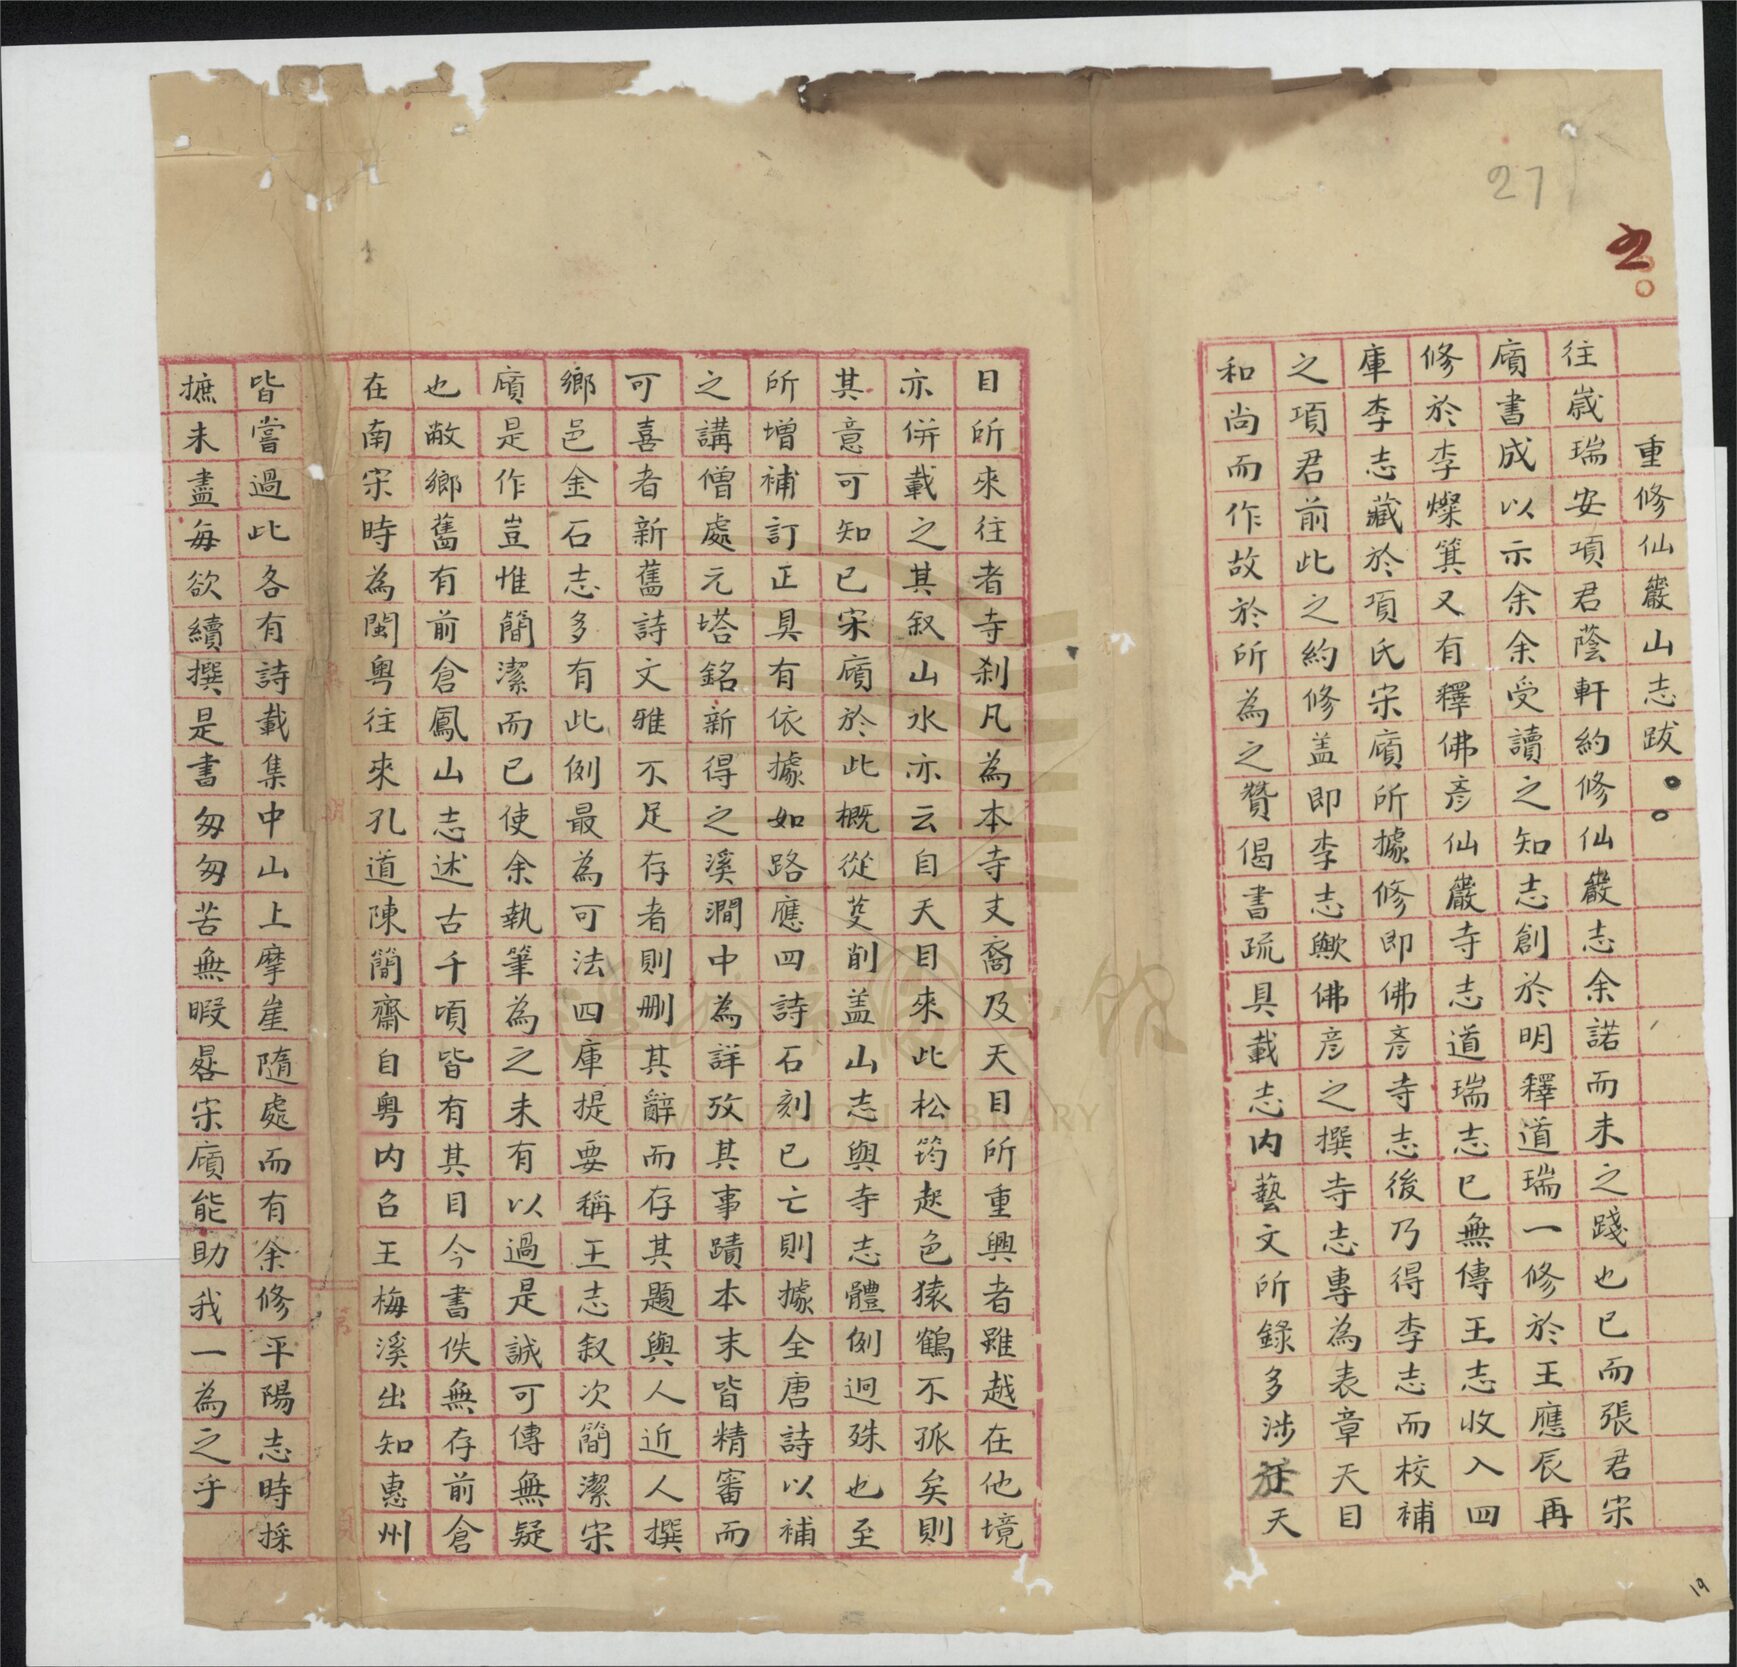 27
重修仙巖山志跋
往歲瑞安項君蔭軒約修仙巖志余諾而未之踐也已而張君宋
廎書成以示余余受讀之知志創於明釋道瑞一修於王應辰再
修於李燦箕又有釋佛彥仙巖寺志道瑞志已無傳王志收入四
庫李志藏於項氏宋廎所據修即佛彥寺志後乃得李志而校補
之項君前此之約修盖即李志歟佛彥之撰寺志專為表章天目
和尚而作故於所為之贊偈書疏具載志内藝文所錄多涉於天
目所來往者寺刹凡為本寺支裔及天目所重興者雖越在他境
亦併載之其叙山水亦云自天目來此松筠起色猿鶴不孤矣則
其意可知已宋廎於此概從芟削盖山志與寺志體例迥殊也至
所增補訂正具有依據如路應四詩石刻已亡則據全唐詩以補
之講僧處元塔銘新得之溪澗中為詳攷其事蹟本末皆精審而
可喜者新舊詩文雅不足存者則删其辭而存其題與人近人撰
鄉邑金石志多有此例最為可法四庫提要稱王志叙次簡潔宋
廎是作豈惟簡潔而已使余執筆為之未有以過是誠可傳無疑
也敝鄉舊有前倉鳳山志述古千頃皆有其目今書佚無存前倉
在南宋時為閩粤往來孔道陳簡齋自粤内召王梅溪出知惠州
皆嘗過此各有詩載集中山上摩崖隨處而有余修平陽志時採
摭未盡每欲續撰是書匆匆苦無暇晷宋廎能助我一為之乎
19